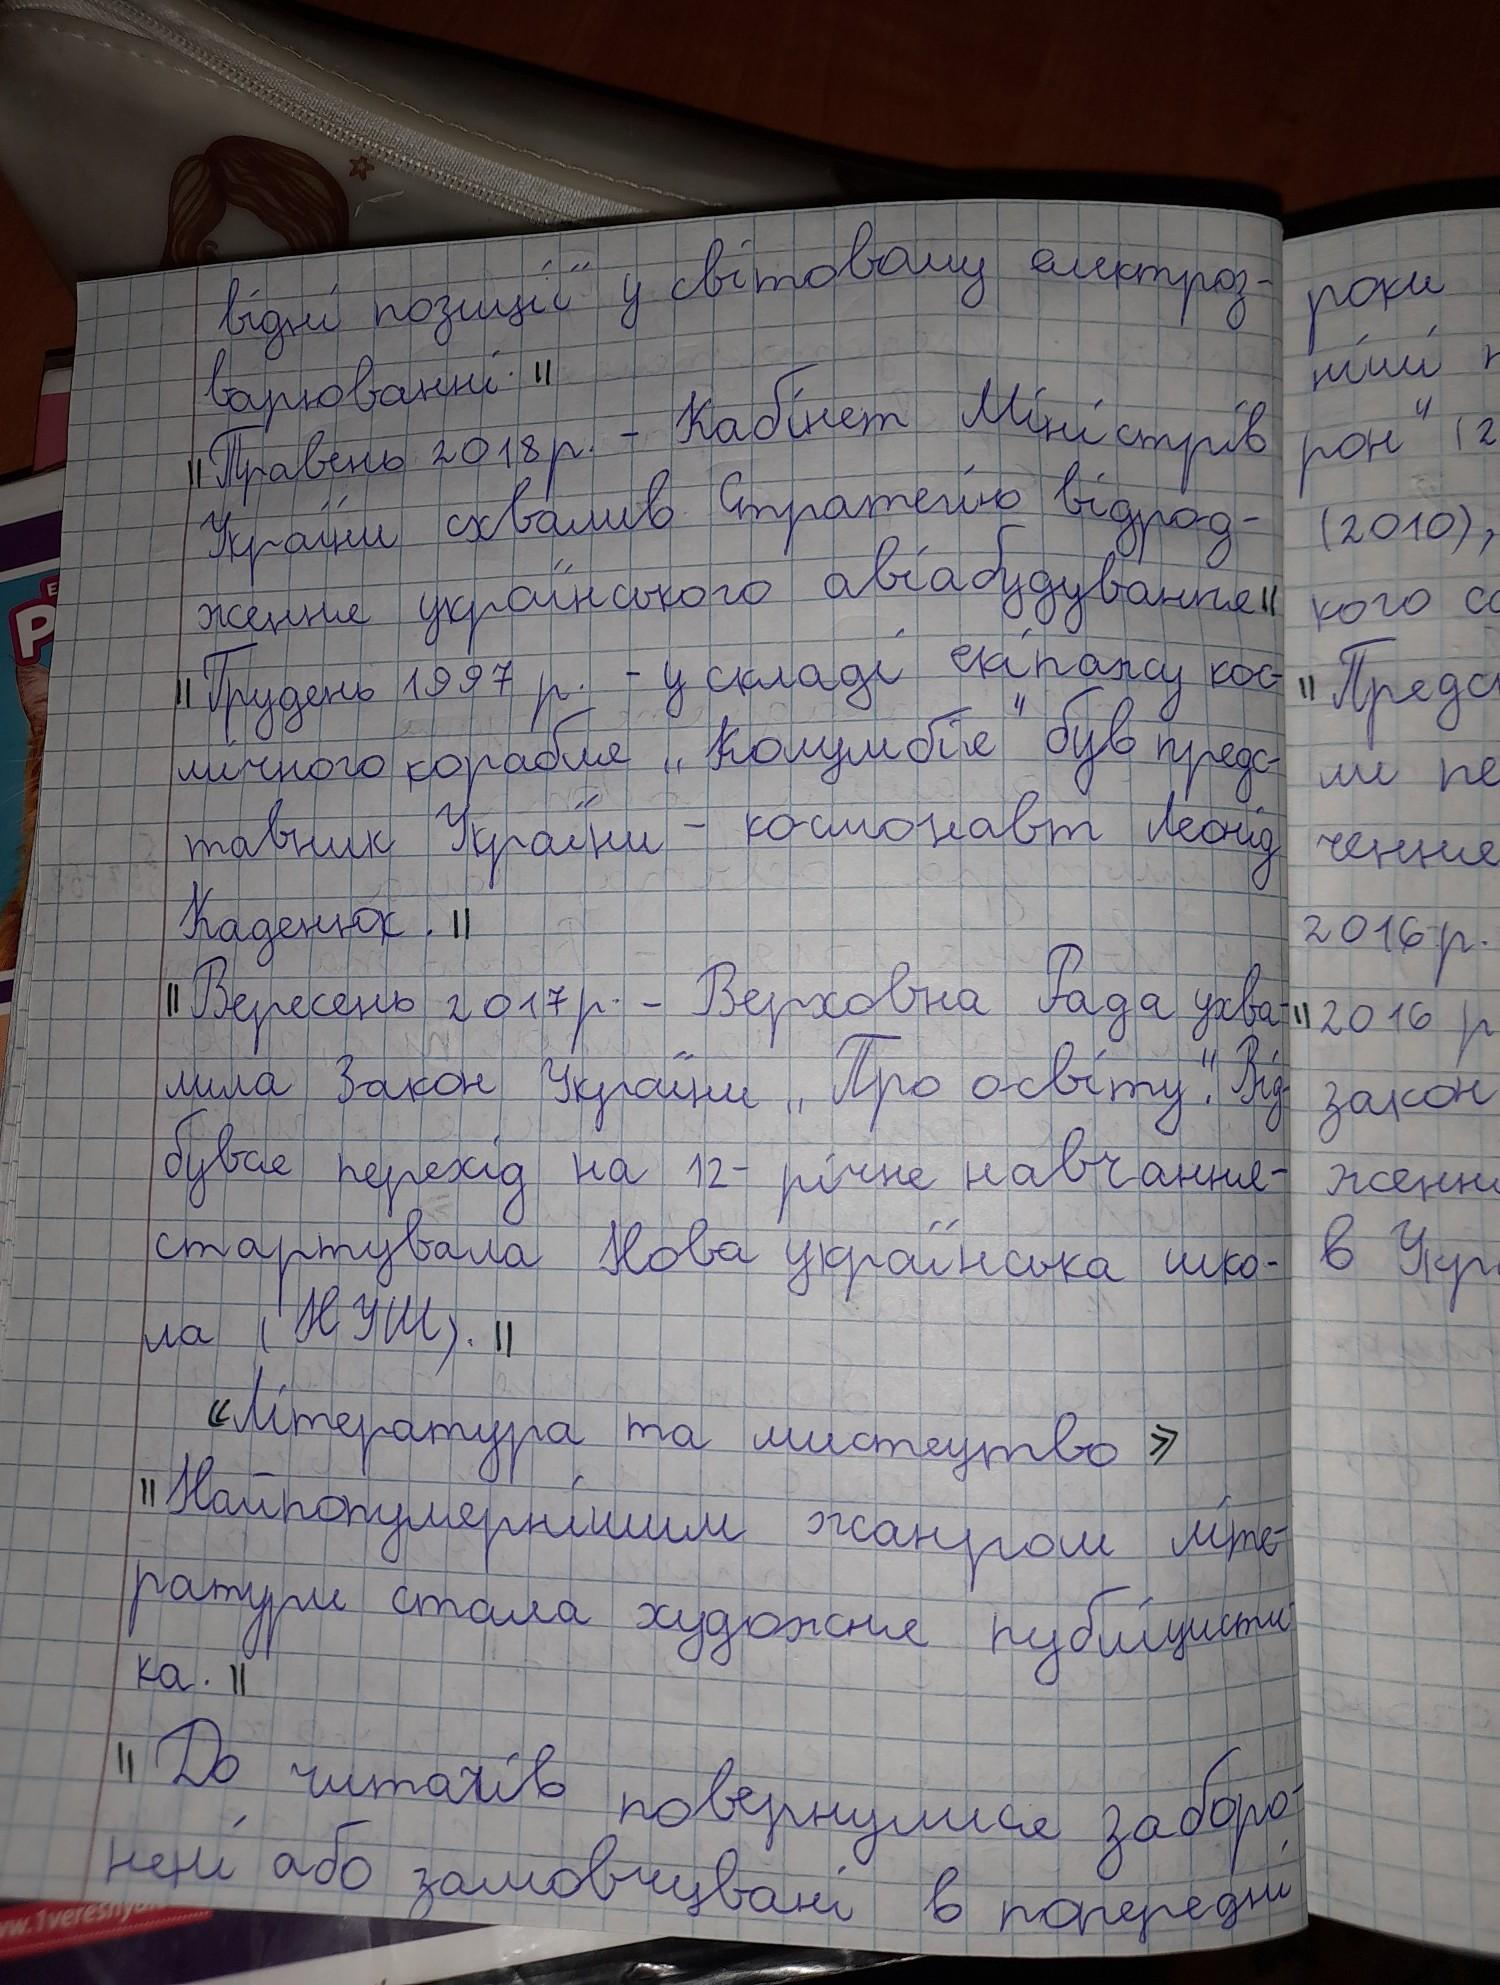 відні позиції" у світовому електроз-
варюванні. "
"Травень 2018 р. - Кабінет Міністрів
України схвалив Стратегію відрод-
ження українського авіабудування"
"Грудень 1997 р. - у складі екіпажу кос-
мічного корабля „Колумбія" був предс-
тавник України - космонавт Леонід
Каденюк. "
"Вересень 2017 р. - Верховна Рада ухва-
лила Закон України „Про освіту". Від-
буває перехід на 12- річне навчання-
стартувала Нова українська шко-
ла (НУШ). "
«Література та мистецтво»
"Найпопулярнішим жанром літе-
ратури стала художня публіцисти
ка. "
"До читачів повернулися заборо-
нені або замовчувані в попередні
роки
ніші
рон" (2
(2010),
кого
"Предс
ми пе
чення
2016 р.
"2016 р
закон
женн
в Укр
www.1veresnya